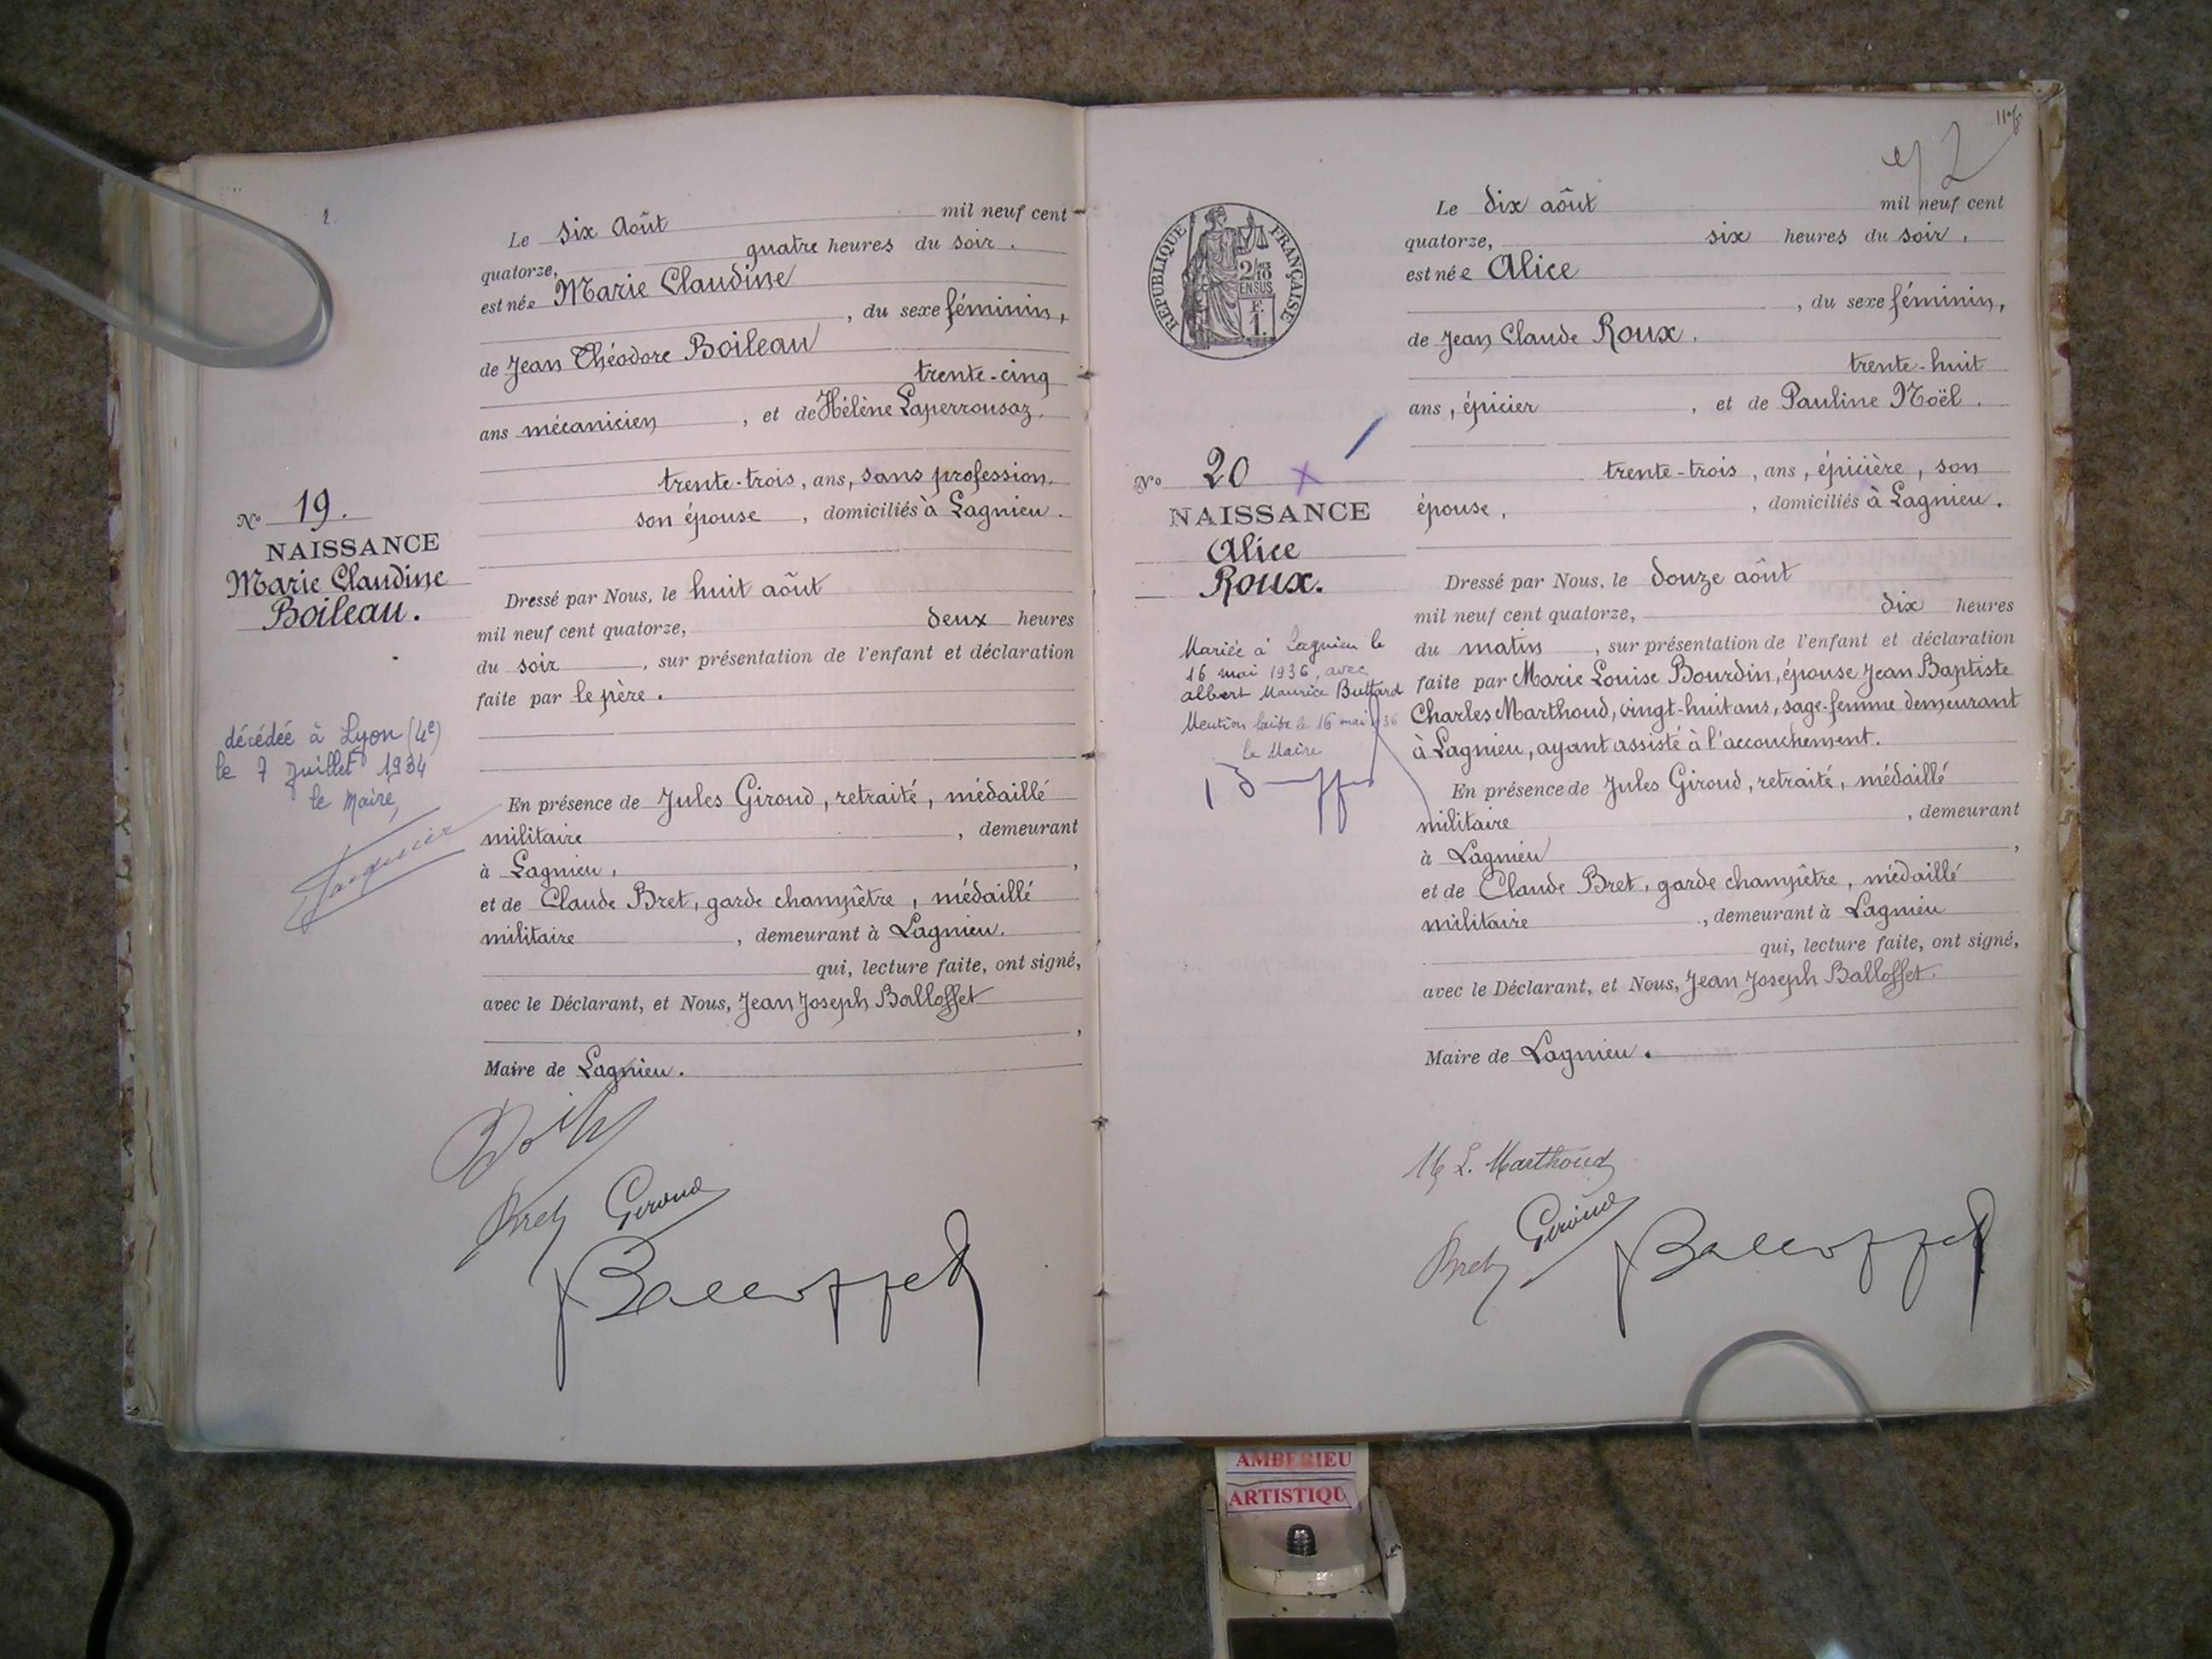 Le six Août mil neuf cent
quatorze, quatre heures du soir.
est née Marie Claudine
, du sexe féminin,
de Jean Théodore Boileau
trente-cinq
ans mécanicien , et de Hélène Laperrousaz.
trente-trois, ans, sans profession.
son épouse , domiciliés à Lagnieu.
Dressé par Nous, le huit août
mil neuf cent quatorze, deux heures
du soir , sur présentation de l'enfant et déclaration
faite par le père.
En présence de Jules Giroud, retraité, médaillé
militaire , demeurant
à Lagnieu, ,
et de Claude Bret, garde champêtre, médaillé
militaire , demeurant à Lagnieu.
qui, lecture faite, ont signé,
avec le Déclarant, et Nous, Jean Joseph Balloffet
,
Maire de Lagnieu.
Bret Giroud
Balloffet
No 19.
NAISSANCE
Marie Claudine
Boileau.
décédée à Lyon (4e)
le 7 juillet 1934
le Maire,
72
RÉPUBLIQUE FRANÇAISE
2/10
EN SUS
No 20
NAISSANCE
Alice
Roux.
Mariée à Lagnieu le
16 mai 1936, avec
Albert Maurice Buttard
Mention faite le 16 mai 1936
le Maire
Le dix août mil neuf cent
quatorze, six heures du soir,
est née Alice
, du sexe féminin,
de Jean Claude Roux.
trente-huit
ans, épicier , et de Pauline Noël.
trente-trois, ans, épicière, son
épouse, , domiciliés à Lagnieu.
Dressé par Nous, le douze août
mil neuf cent quatorze, dix heures
du matin , sur présentation de l'enfant et déclaration
faite par Marie Louise Bourdin, épouse Jean Baptiste
Charles Marthoud, vingt-huit ans, sage-femme demeurant
à Lagnieu, ayant assisté à l'accouchement.
En présence de Jules Giroud, retraité, médaillé
militaire , demeurant
à Lagnieu ,
et de Claude Bret, garde champêtre, médaillé
militaire , demeurant à Lagnieu
qui, lecture faite, ont signé,
avec le Déclarant, et Nous, Jean Joseph Balloffet.
Maire de Lagnieu.
M L. Marthoud
Bret Giroud
Balloffet
AMBERIEU
ARTISTIQU